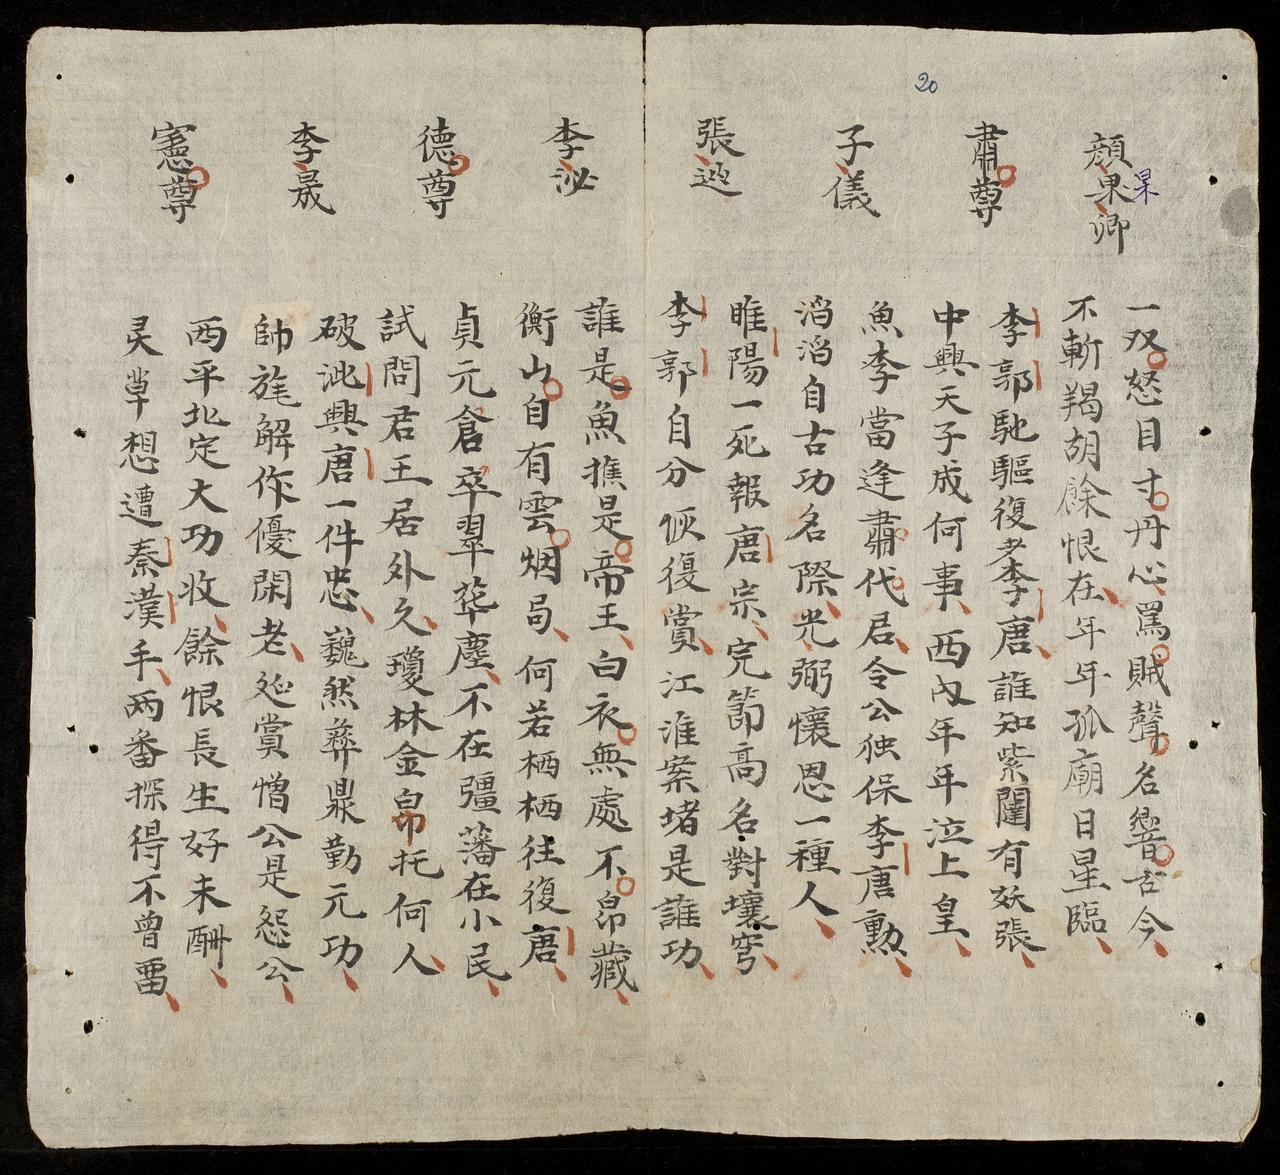 20
顔果卿
杲
一双怒目寸丹心罵賊聲名響古今
不斬羯胡餘恨在年年孤廟日星臨
肅尊
李郭馳驅復李唐誰知紫闥有妖張
中興天子成何事西內年年泣上皇
子儀
魚李當逢肅代君令公独保李唐勳
滔滔自古功名際光弼懷恩一種人
張巡
睢陽一死報唐宗完節高名對壤穹
李郭自分恢復賞江淮案堵是誰功
李泌
誰是魚樵是帝王白衣無處不昂藏
衡山自有雲烟局何若栖栖往復唐
德尊
貞元倉卒翠華塵不在彊藩在小民
試問君王居外久瓊林金帛托何人
李晟
破泚興唐一件忠巍然彝鼎勤元功
帥旄解作優閑老延賞憎公是怨公
憲尊
西平北定大功收餘恨長生好未酬
灵草想遭秦漢手两番採得不曾畱